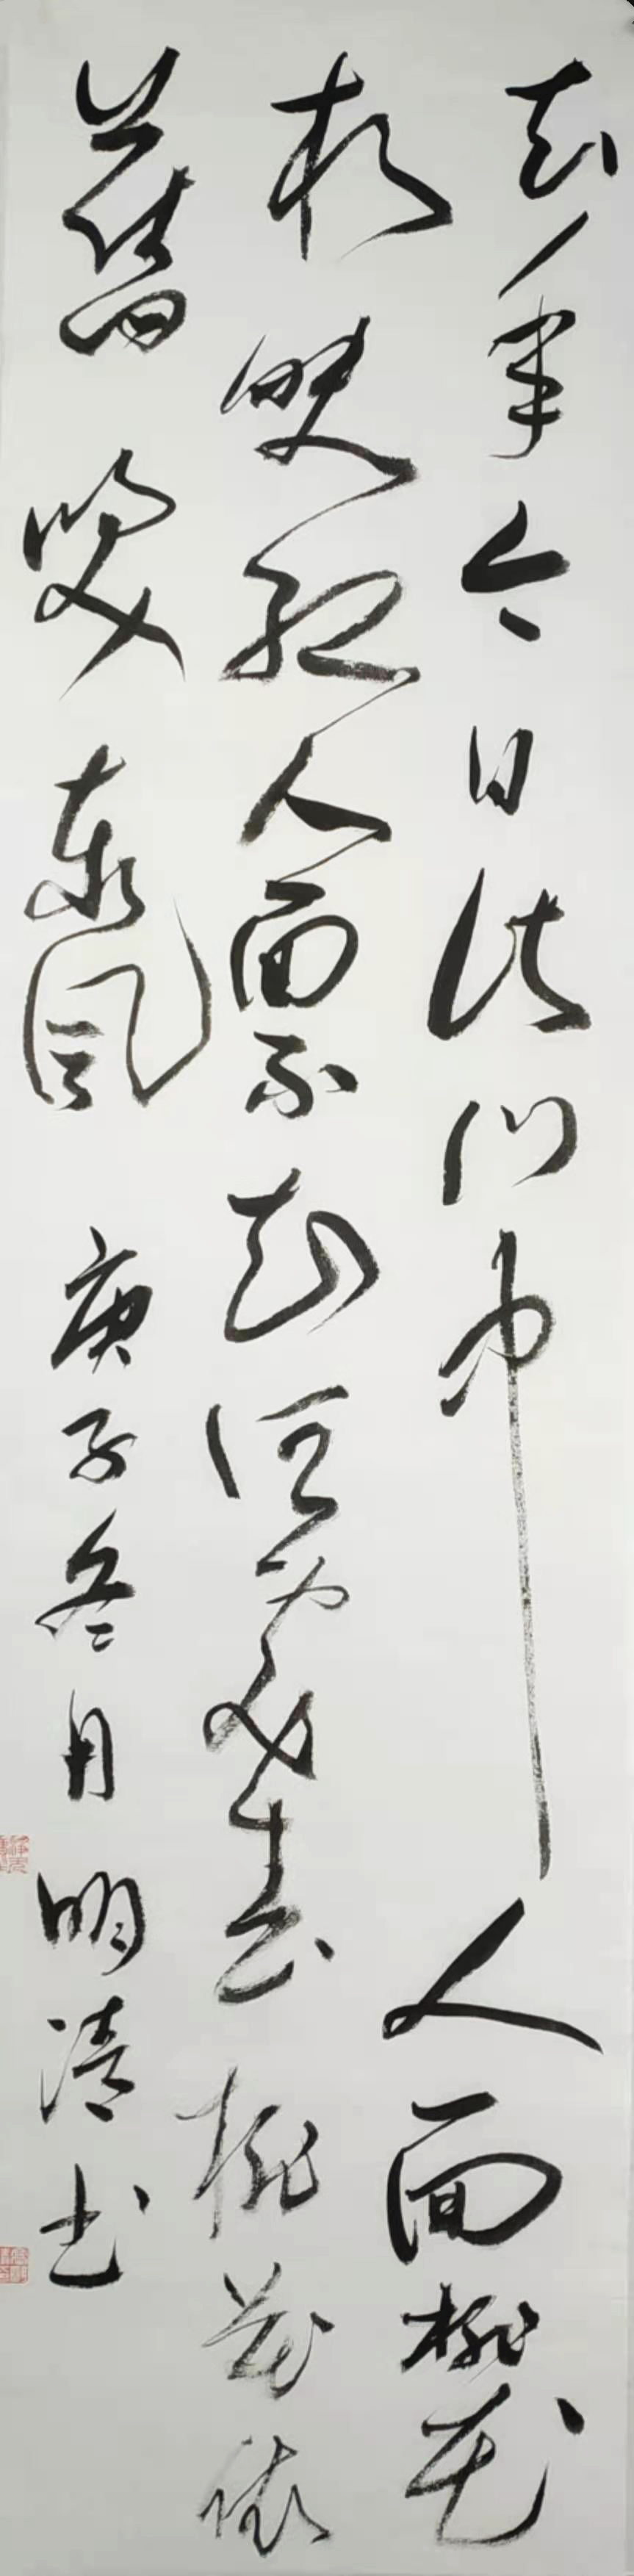 去年今日此门中人面桃花
相映红人面不知何处去桃花依
旧笑东风
庚子冬月明清书